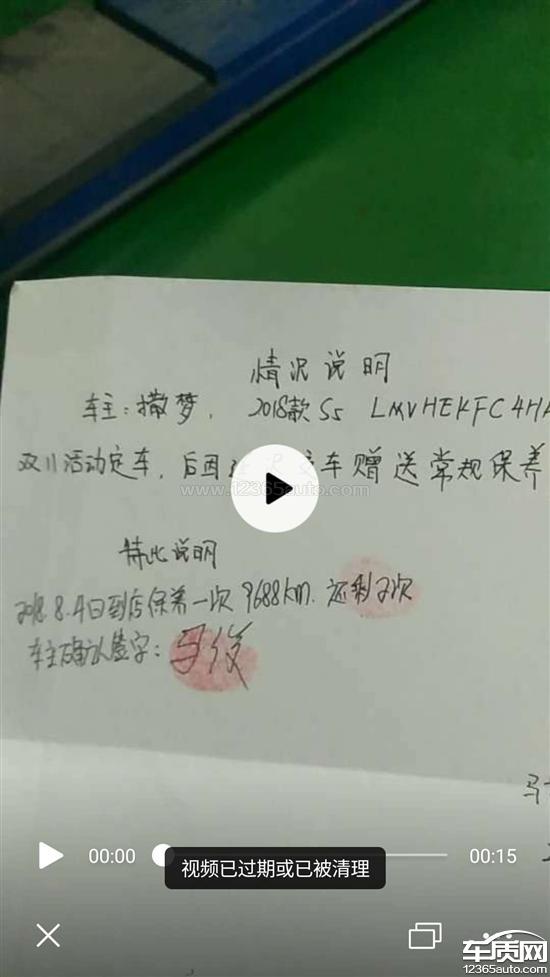 情况说明
车主：撒梦， 2018款S5 LMVHEKFC4HA
双11活动定车，后因 交车赠送常规保养
www.12365auto.com
特此说明
2018.8.4日到店保养一次 9688km. 还剩2次
车主确认签字：马俊
马
00:00
00:15
视频已过期或已被清理
车质网
12365auto.com